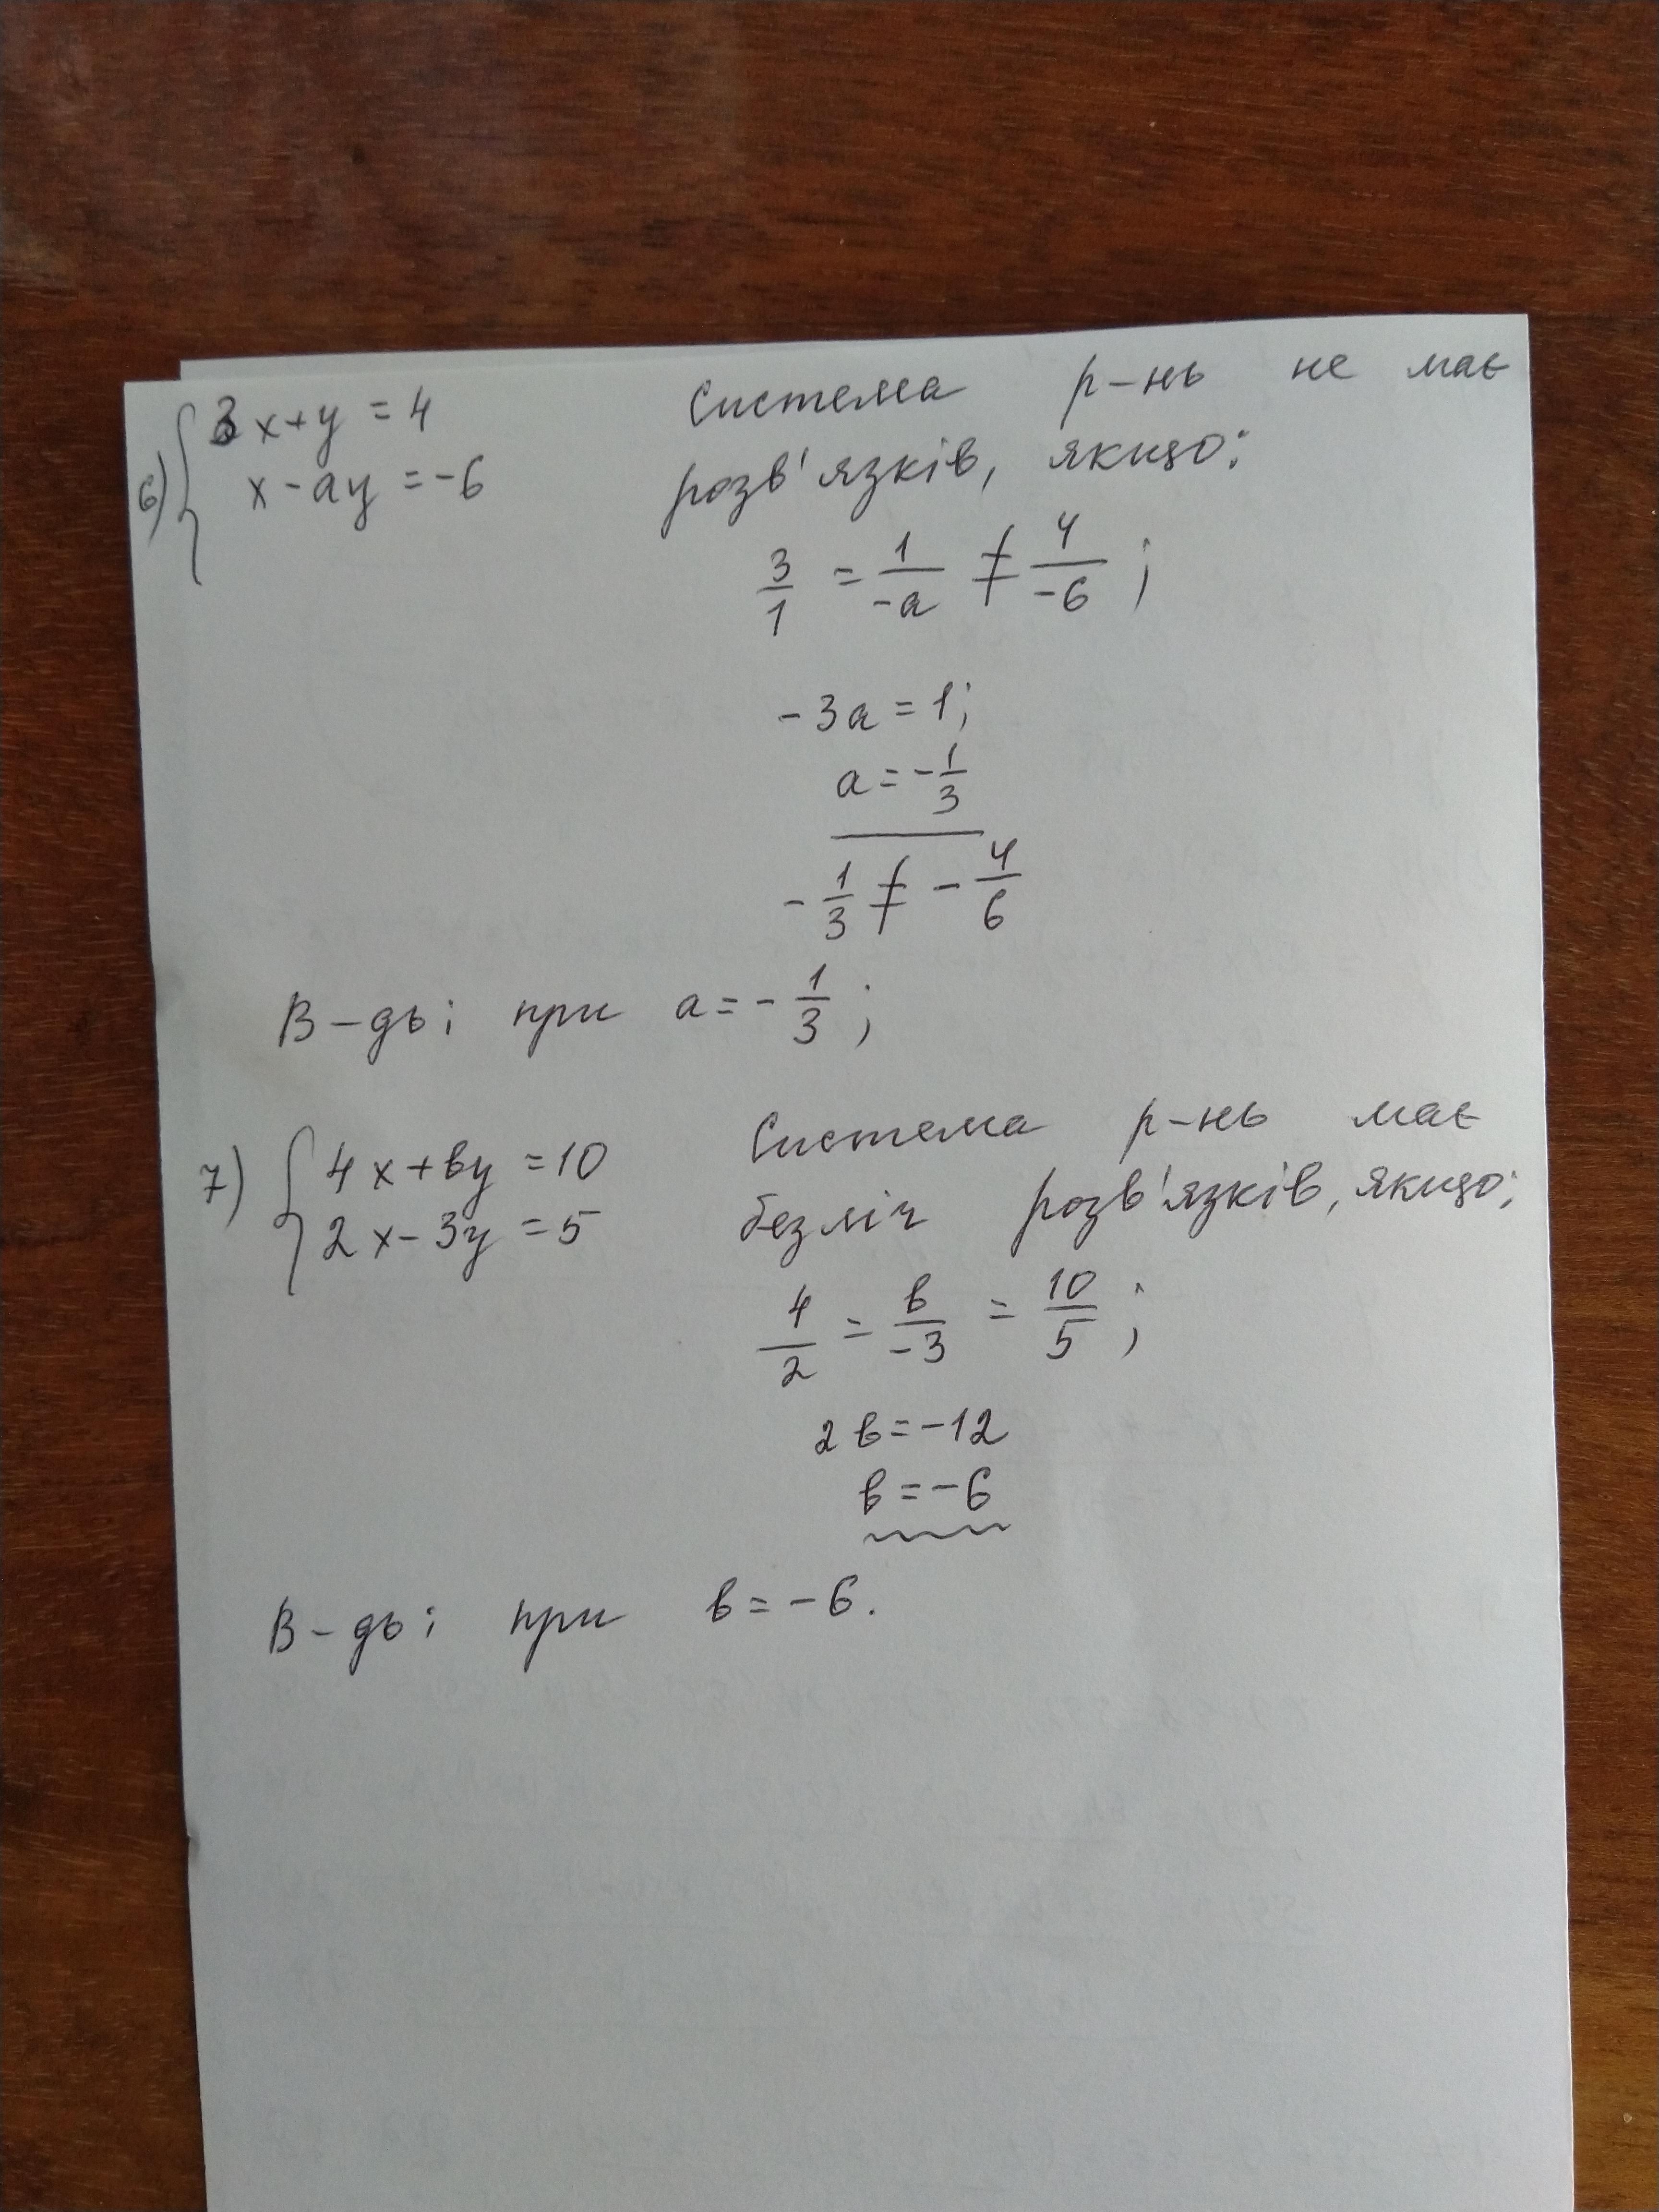 6) { 3x+y=4
x-ay=-6
Система р-нь не має
розв'язків, якщо:
3/1 = 1/-a ≠ 4/-6 ;
-3a=1;
a=-1/3
-1/3 ≠ -4/6
В-дь: при a=-1/3 ;
7) { 4x+вy=10
2x-3y=5
Система р-нь має
безліч розв'язків, якщо:
4/2 = в/-3 = 10/5 ;
2в=-12
в=-6
В-дь: при в=-6.